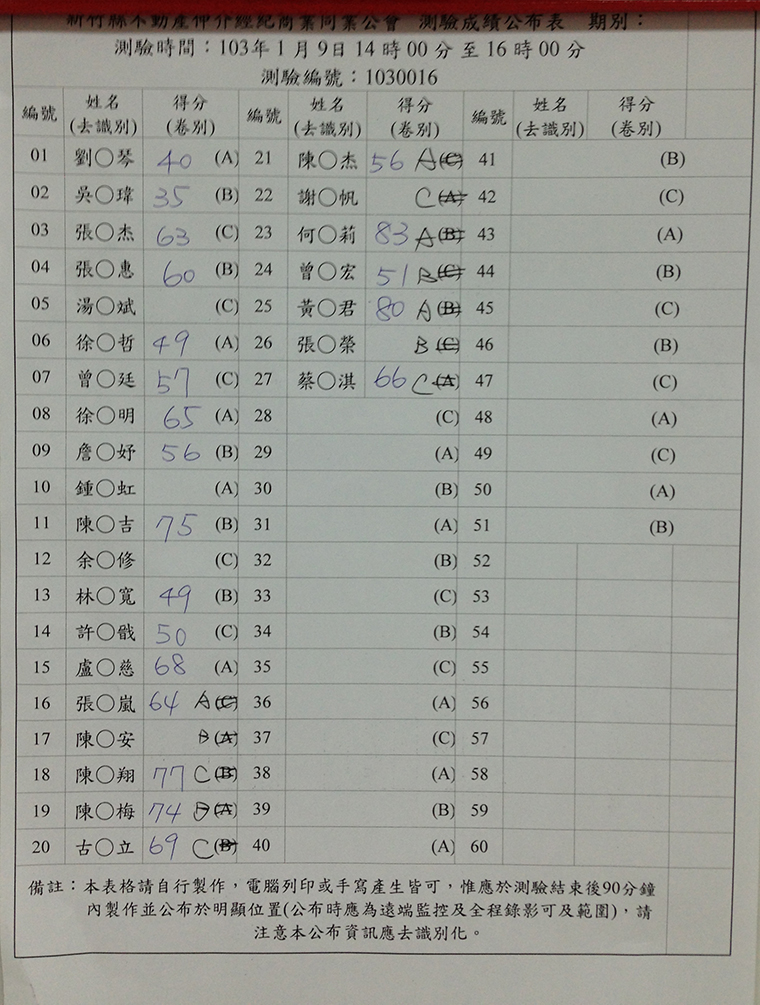 新竹縣不動產仲介經紀商業同業公會 測驗成績公布表 期別：
測驗時間：103年1月9日14時00分至16時00分
測驗編號：1030016
編號 姓名(去識別) 得分(卷別) 編號 姓名(去識別) 得分(卷別) 編號 姓名(去識別) 得分(卷別)
01 劉○琴 40 (A) 21 陳○杰 56 A(C) 41 (B)
02 吳○瑋 35 (B) 22 謝○帆 C(A) 42 (C)
03 張○杰 63 (C) 23 何○莉 83 A(B) 43 (A)
04 張○惠 60 (B) 24 曾○宏 51 B(C) 44 (B)
05 湯○斌 (C) 25 黃○君 80 A(B) 45 (C)
06 徐○哲 49 (A) 26 張○榮 B(C) 46 (B)
07 曾○廷 57 (C) 27 蔡○淇 66 C(A) 47 (C)
08 徐○明 65 (A) 28 (C) 48 (A)
09 詹○妤 56 (B) 29 (A) 49 (C)
10 鍾○虹 (A) 30 (B) 50 (A)
11 陳○吉 75 (B) 31 (A) 51 (B)
12 余○修 (C) 32 (B) 52
13 林○寬 49 (B) 33 (C) 53
14 許○戩 50 (C) 34 (B) 54
15 盧○慈 68 (A) 35 (C) 55
16 張○嵐 64 A(C) 36 (A) 56
17 陳○安 B(A) 37 (C) 57
18 陳○翔 77 C(B) 38 (A) 58
19 陳○梅 74 B(A) 39 (B) 59
20 古○立 69 C(B) 40 (A) 60
備註：本表格請自行製作，電腦列印或手寫產生皆可，惟應於測驗結束後90分鐘
內製作並公布於明顯位置(公布時應為遠端監控及全程錄影可及範圍)，請
注意本公布資訊應去識別化。